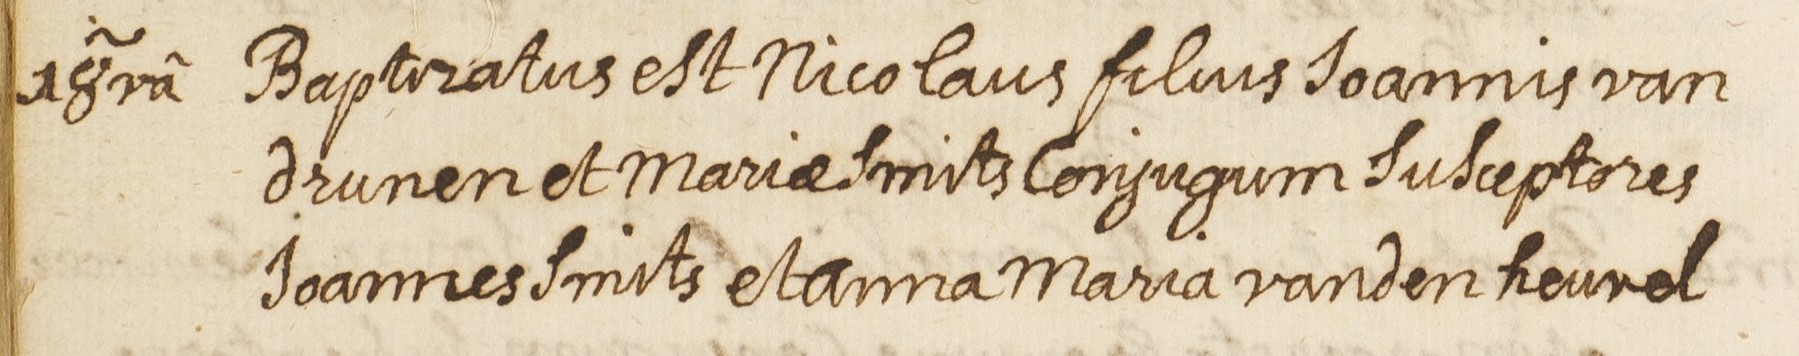 18r̃vâ Baptizatus est Nicolaus filius Joannis van
drunen et Mariæ Smits Conjugum Susceptores
Joannes Smits et anna Maria vanden heuvel